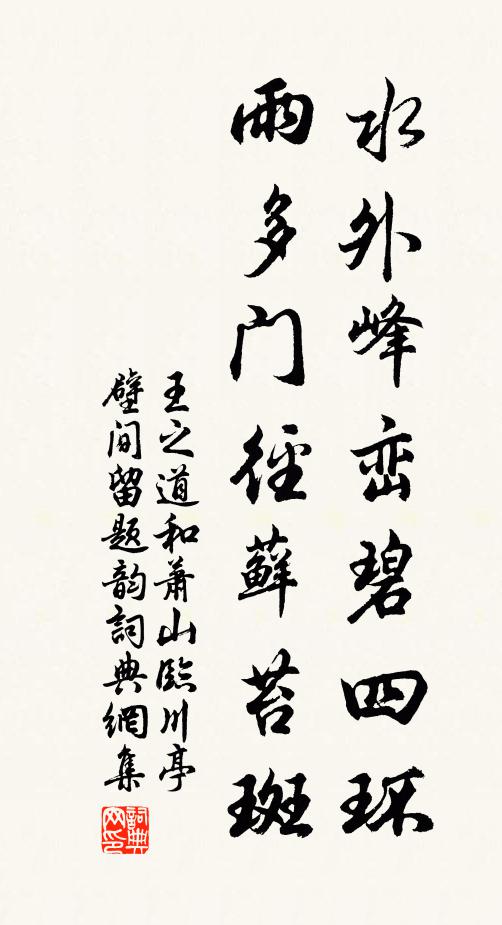 水外峰峦碧四环
雨多门径藓苔斑
王之道和萧山临川亭
壁间留题韵词典网集
词典网印